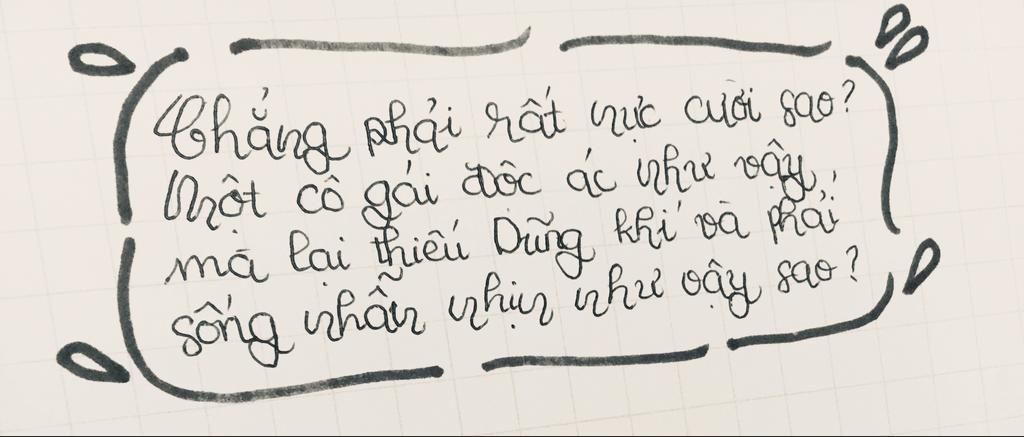 Chẳng phải rất nực cười sao?
Một cô gái độc ác như vậy,
mà lại thiếu Dũng khí và phải
sống nhẫn nhịn như vậy sao?